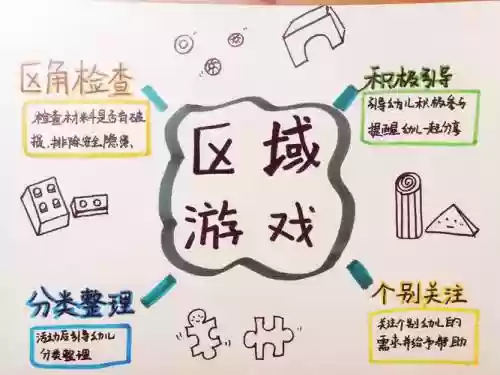 区角检查
检查材料是否有破
损、排除安全隐患。
积极引导
引导幼儿积极参与
提醒幼儿一起分享
区域
游戏
分类整理
活动后引导幼儿
分类整理
个别关注
关注个别幼儿的
需求并给予帮助